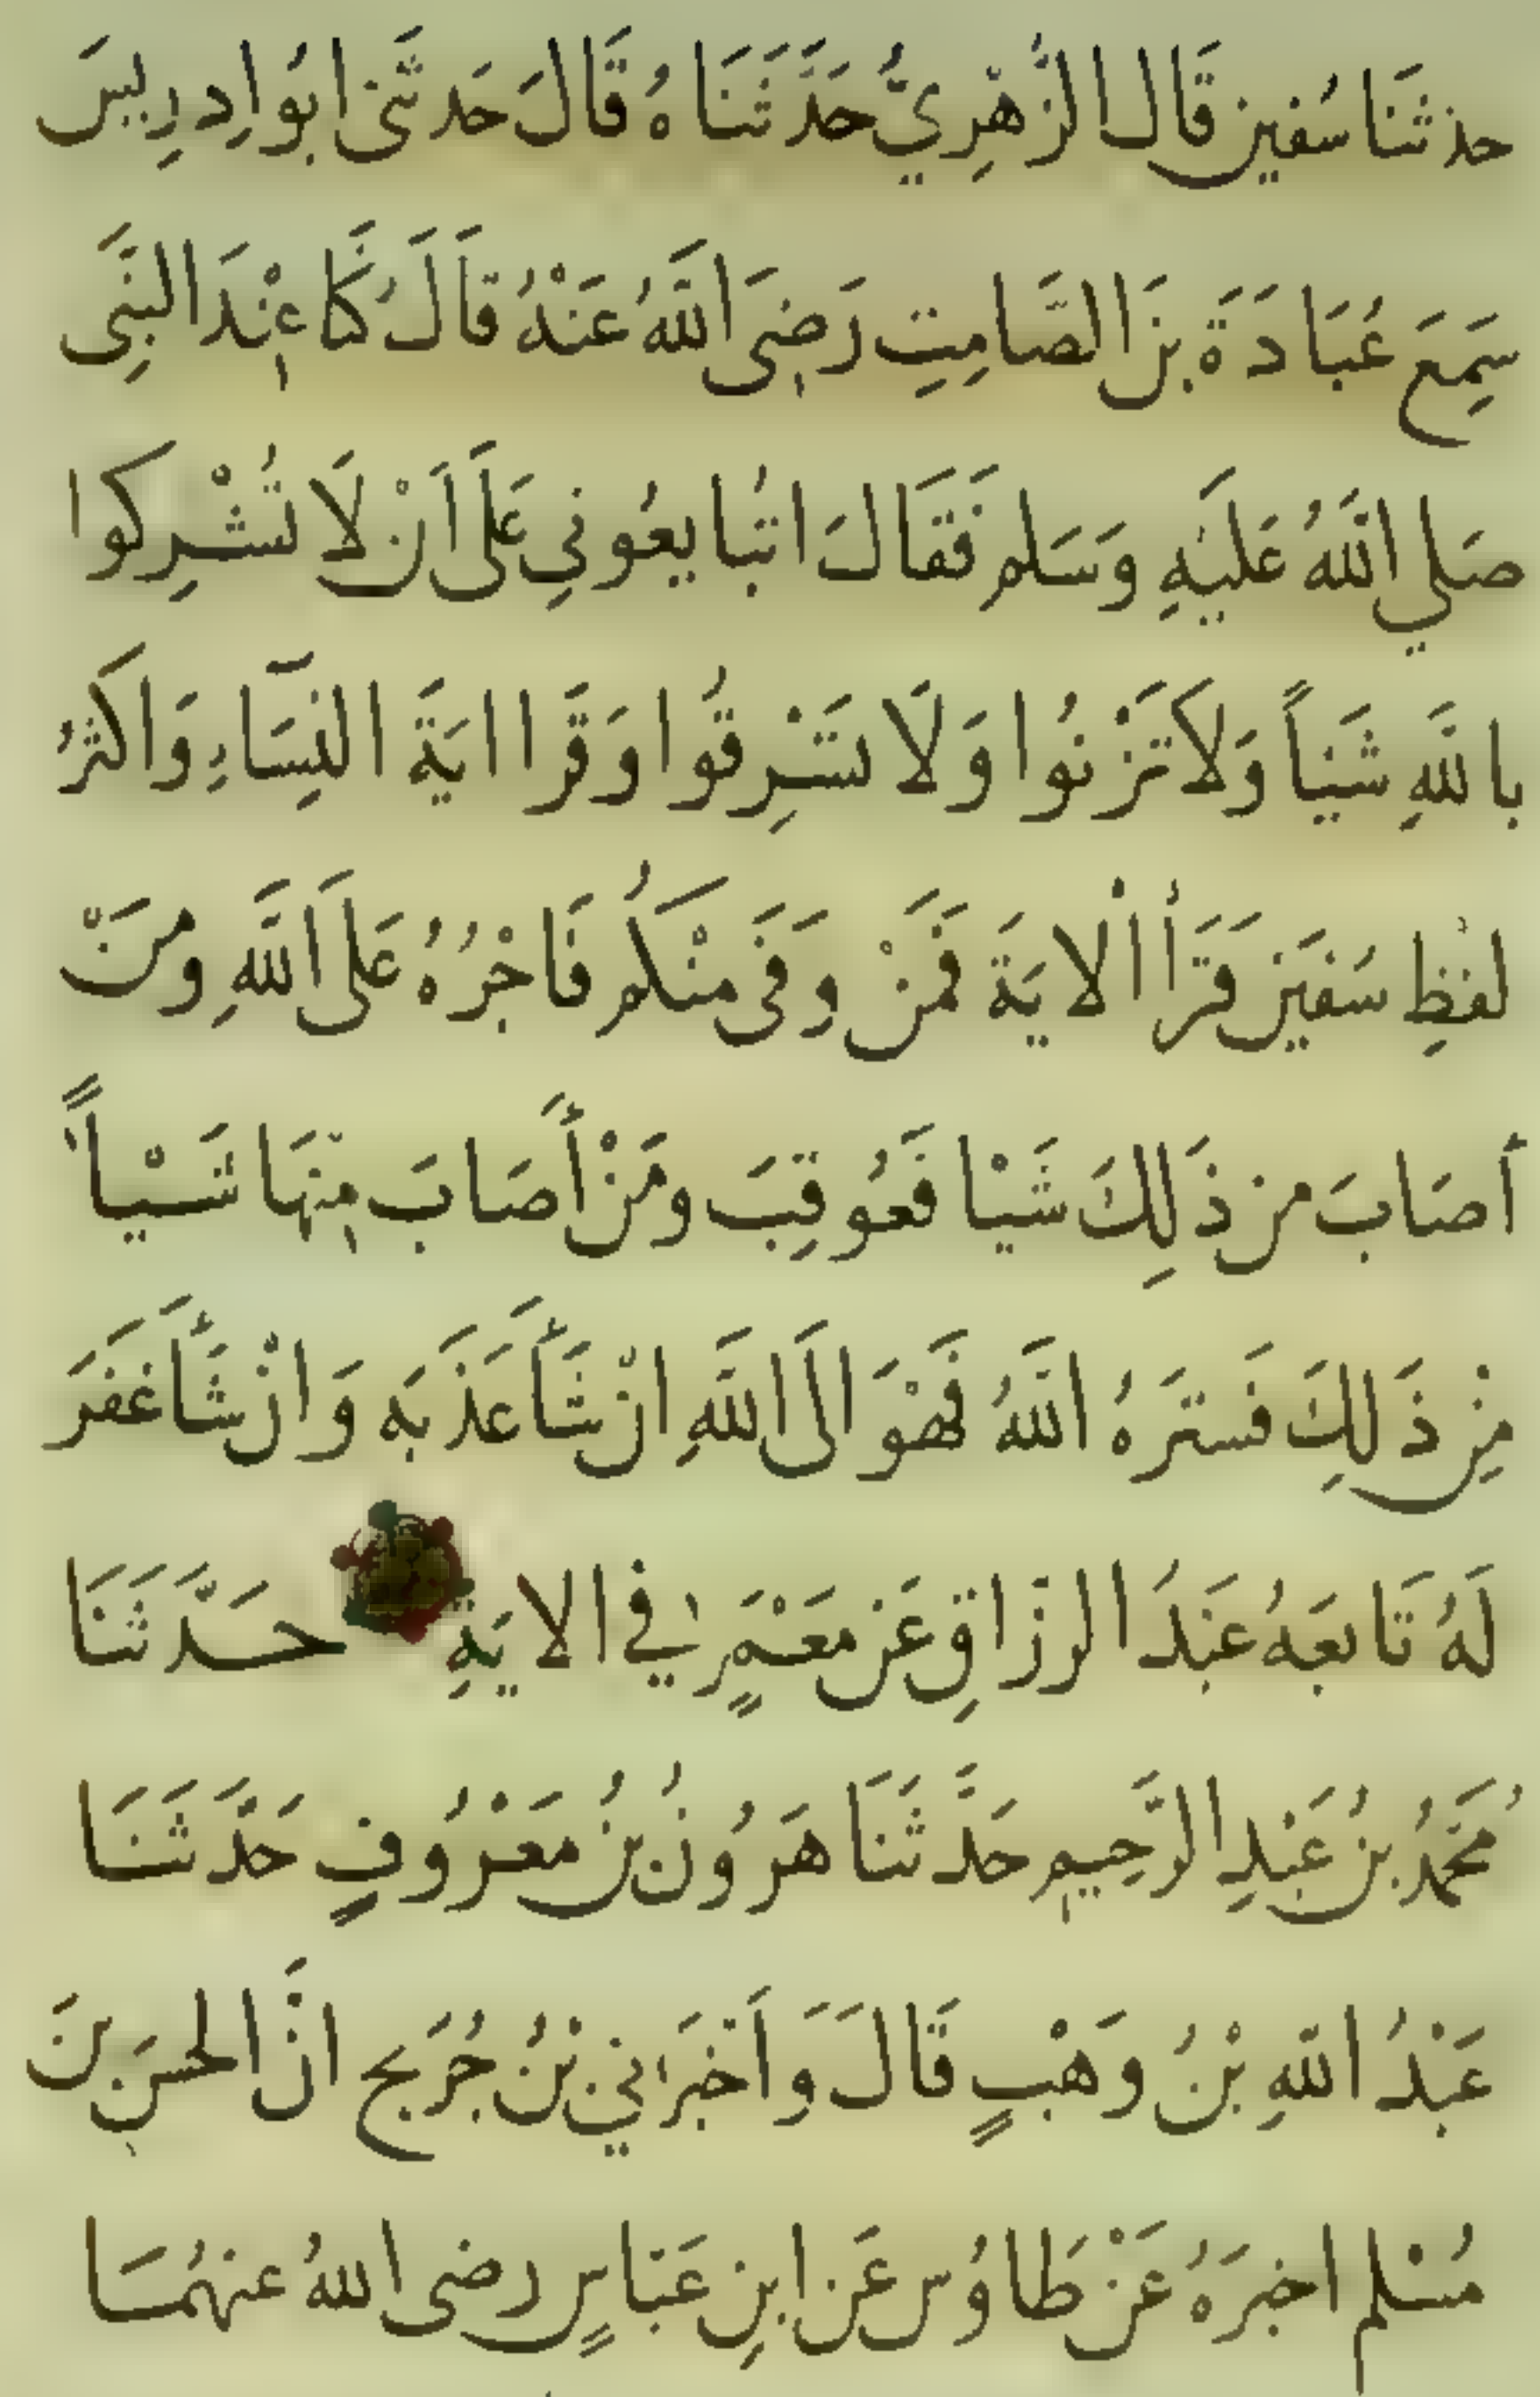 حدثنا سُفين قَال الزُّهْرِيُّ حَدَّثَنَاهُ قَالَ حَدثَنى ابُو اِدرِيسَ
سَمِعَ عُبَادَةَ بنَ الصَّامِتِ رَضِىَ اللَّهُ عَنْهُ قَالَ كُنَّا عِنْدَ النَّبِى
صَلي اللَّهُ عَليْهِ وَسَلم فَقَالَ اتُبَايعُونِي عَلَى اَنْ لَا تُشْرِكوا
باللَّهِ شَيْاً وَلَا تَزْنُوا وَلَا تَسْرِقُوا وَقَرا ايَةَ النِسَاءِ وَاكثَرُ
لفظِ سُفيَن قَرَأَ الْايَةَ فَمَنْ وَفَى مِنْكُم فَاجْرُهُ عَلَى اللَّهِ ومَنْ
أصَابَ من ذَلِكَ شَيْا فَعُوقِبَ ومَنْ أَصَابَ مِنهَا شَيْياً
مِنْ ذَلِكَ فَستَرَهُ اللَّهُ فَهْوَ الَى اللَّهِ انْ شَأَ عَذَبَه وَانْ شَأَ غَفَرَ
لَهُ تَابعَهُ عَبدُ الرزَاقِ عَن مَعْمَرٍ في الايَةِ حَدَّثَنَا
مُحَمَدُ بنُ عَبْدِ الرَّحِيمِ حَدَّثَنَا هَرُونُ بنُ مَعْرُوفٍ حَدَّثَنَا
عَبْدُ اللهِ بْنُ وَهْبٍ قَالَ وَاَخْبَرَنِي بْنُ جُرَيج انَّ الحسَنَ بنَ
مُسْلم اخبرَهُ عَنْ طَاوُس عَن ابنِ عَبَاسٍ رضى اللهُ عنهُمَا